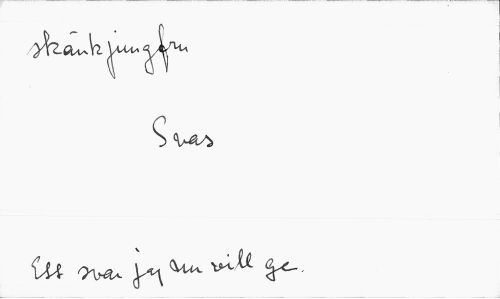 skänkjungfru
Svas
Ess svar jag nu vill ge.